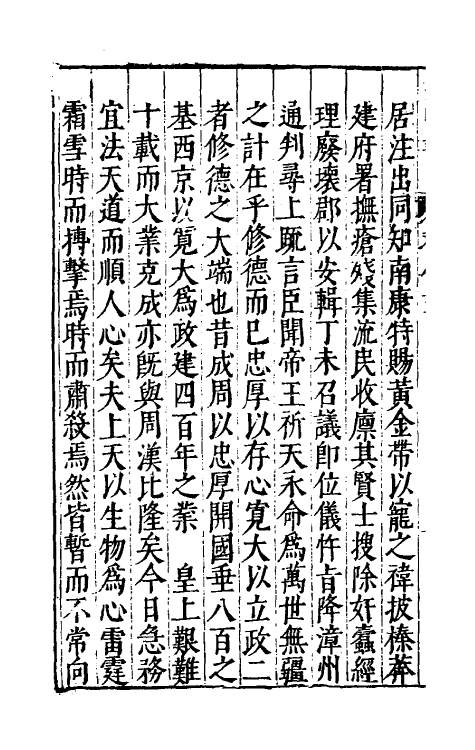 居注出同知南康特賜黃金帶以寵之禕披榛莽
建府署撫瘡殘集流民收廪其賢士搜除奸蠹經
理廢壞郡以安輯丁未召議即位儀忤旨降漳州
通判尋上䟽言臣聞帝王祈天永命爲萬世無疆
之計在乎修德而已忠厚以存心寛大以立政二
者修德之大端也昔成周以忠厚開國垂八百之
基西京以寛大爲政建四百年之業　皇上艱難
十載而大業克成亦旣與周漢比隆矣今日急務
宜法天道而順人心矣夫上天以生物爲心雷霆
霜雪時而搏擊焉時而肅殺焉然皆暫而不常向